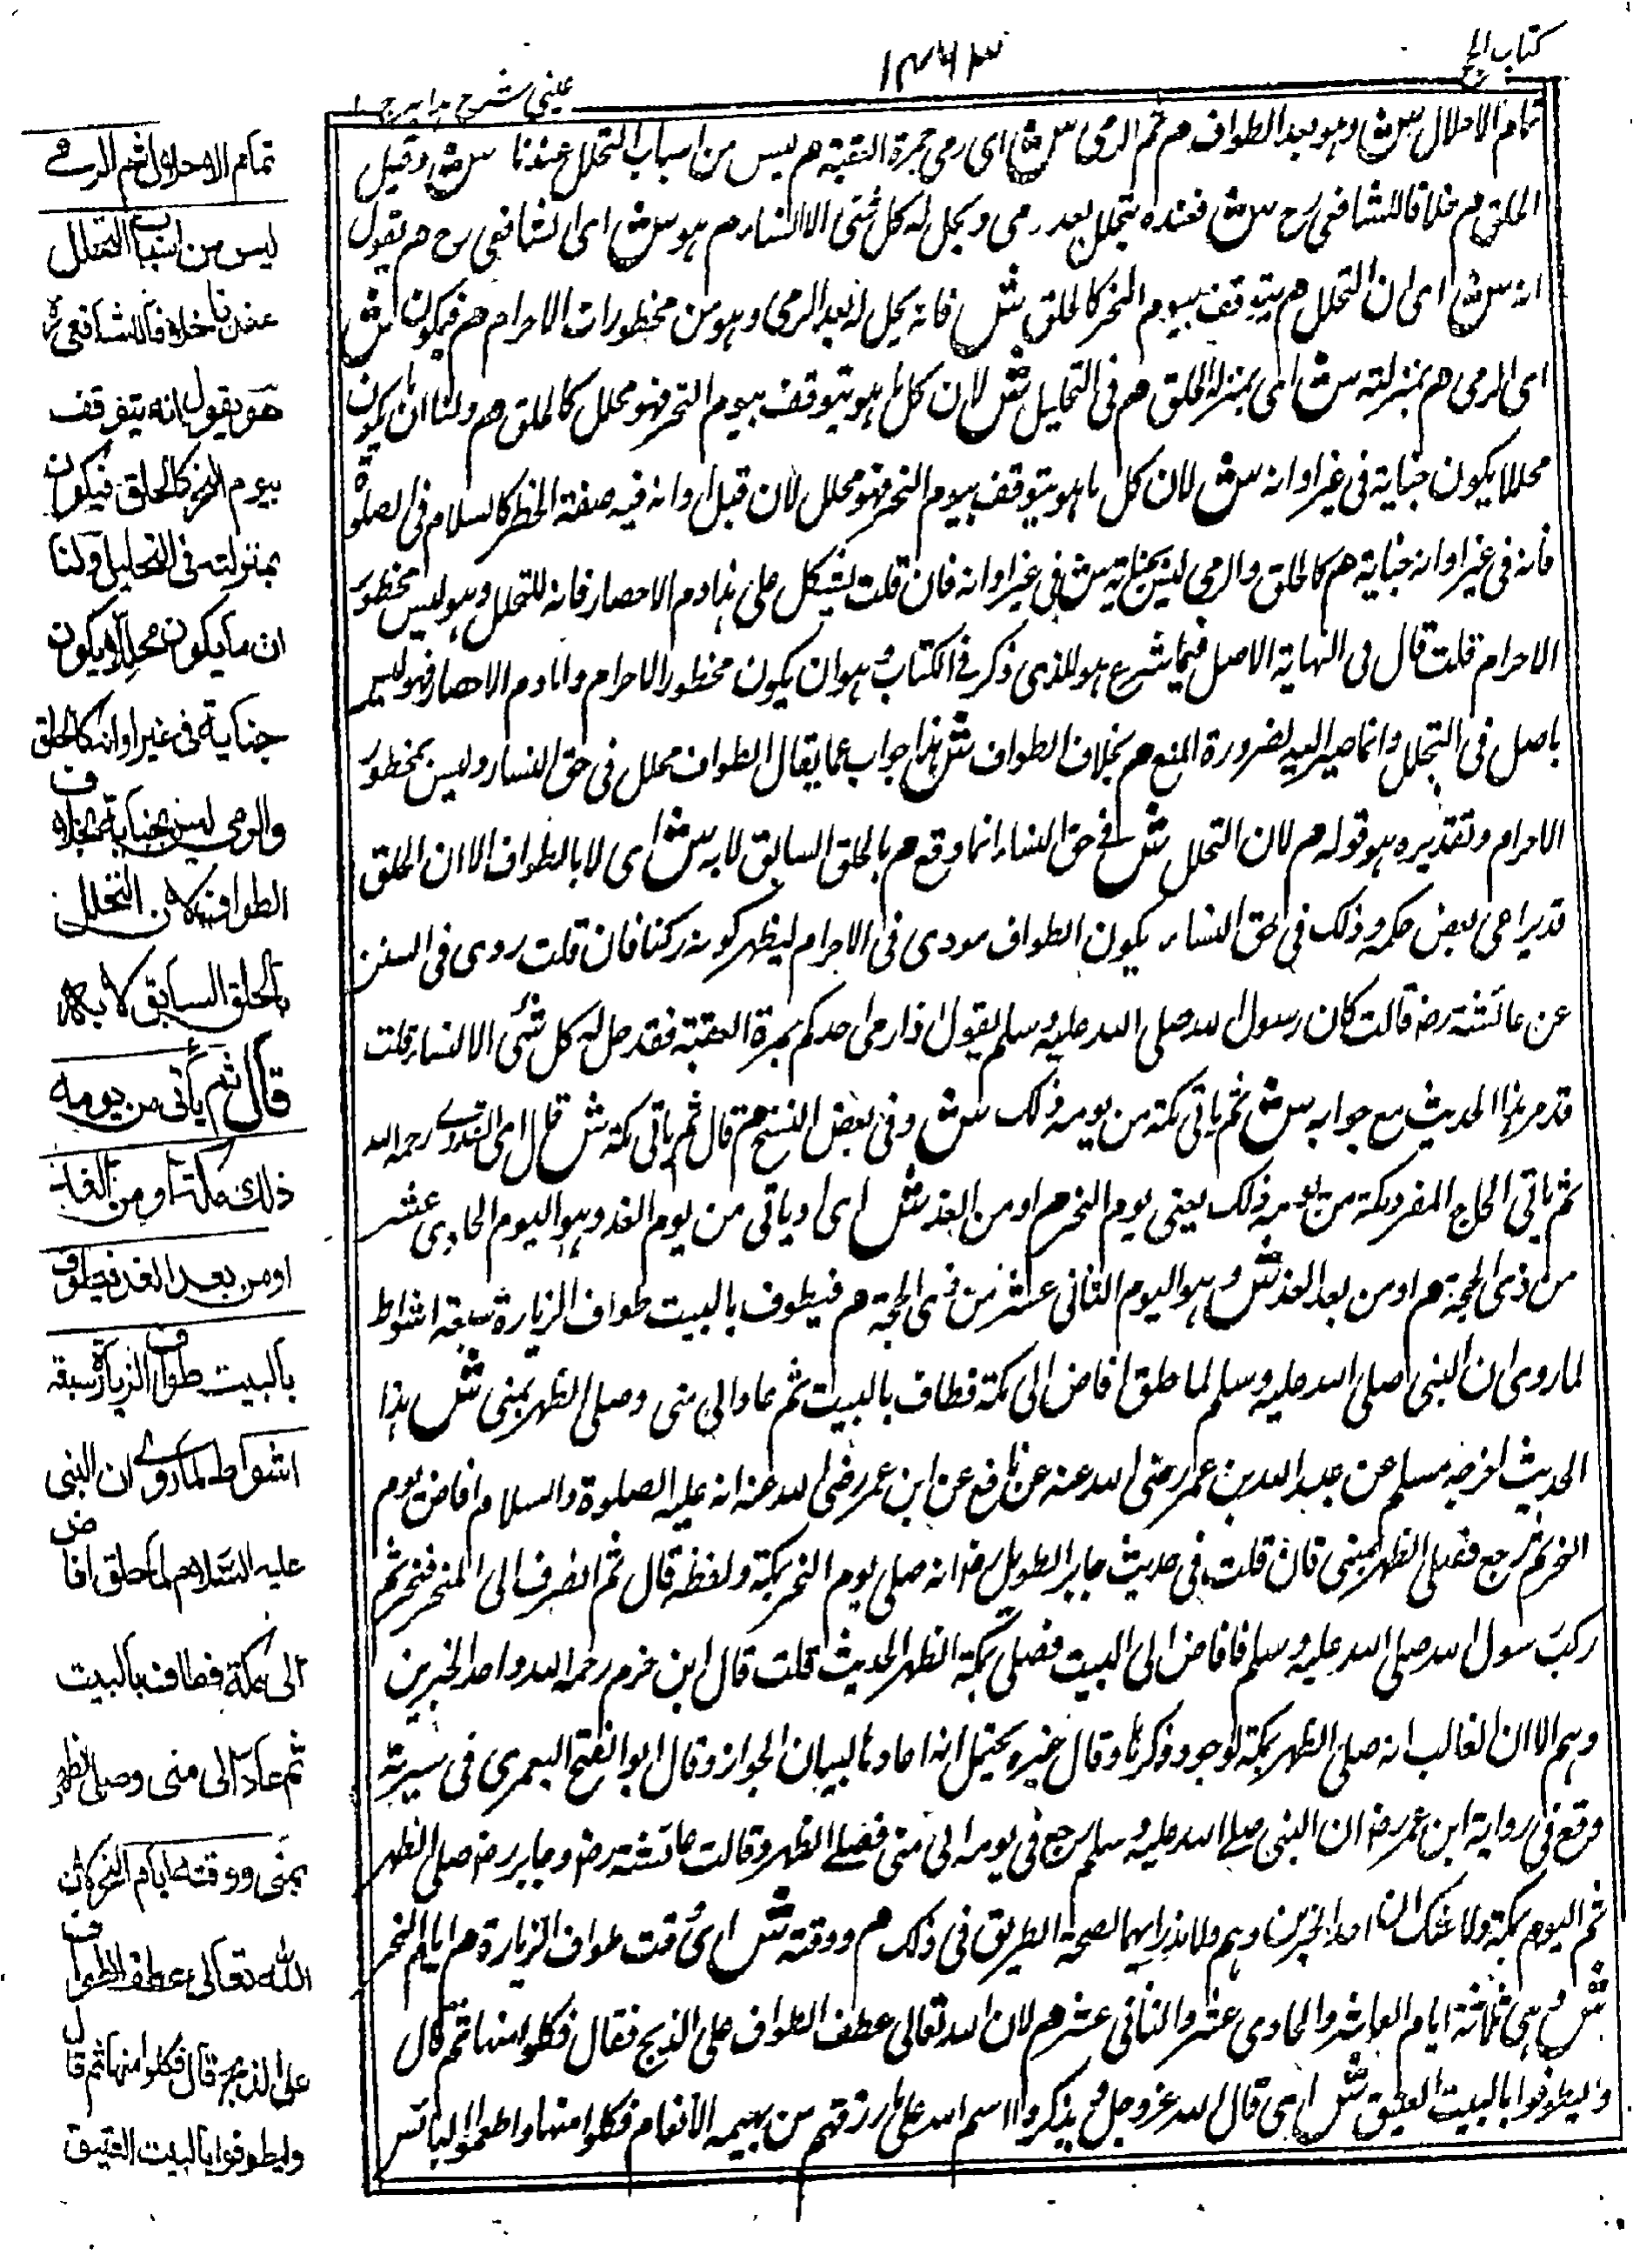 كتاب الحج
١٤٦٣
عيني شرح هدايه ج ١
تمام الاحلال س ش وهو بعد الطواف هم ثم الرمى س ش اى رمى جمرة العقبة هم ليس من اسباب التحلل عندنا س ش وقيل
الحلق هم خلافا للشافعى رح س ش فعنده يتحلل بعد رمى ويحل له كل شئ الا النساء هم هو س ش اى الشافعى رح هم يقول
انه س ش اى ان التحلل هم يتوقف بيوم النحر كالحلق ش فانه يحل له بعد الرمى وهو من محظورات الاحرام هم فيكون ش
اى الرمى هم بمنزلته س ش اى بمنزلة الحلق هم فى التحليل ش لان كل ما هو يتوقف بيوم النحر فهو محلل كالحلق هم ولنا ان ما يكون
محللا يكون جناية فى غير اوانه س ش لان كل ما هو يتوقف بيوم النحر فهو محلل لان قبل اوانه فيه صفة الحظر كالسلام فى الصلوة
فانه فى غير اوانه جناية هم كالحلق والرمى ليس بجناية ش فى غير اوانه فان قلت يشكل على هذا دم الاحصار فانه للتحلل وهو ليس بمحظور
الاحرام قلت قال فى النهاية الاصل فيما شرع هو الذى ذكر فى الكتاب وهو ان يكون محظور الاحرام واما دم الاحصار فهو ليس
باصل فى التحلل وانما صير اليه لضرورة المنع هم بخلاف الطواف ش هذا جواب عما يقال الطواف محلل فى حق النساء وليس بمحظور
الاحرام وتقديره هو قوله هم لان التحلل ش فى حق النساء انما وقع هم بالحلق السابق لا به س ش اى لا بالطواف الا ان الحلق
قد يراعى بعض حكمه وذلك فى حق النساء يكون الطواف مودى فى الاحرام ليظهر كونه ركنا فان قلت روى فى السنن
عن عائشة رض قالت كان رسول الله صلى الله عليه وسلم يقول اذا رمى احدكم بجمرة العقبة فقد حل له كل شئ الا النساء قلت
قد مر هذا الحديث مع جوابه س ش ثم ياتى مكة من يومه ذلك ش وفى بعض النسخ هم قال ثم ياتى مكة ش قال اى القدورى رحمه الله
ثم ياتى الحاج المفرد مكة من يومه ذلك يعنى يوم النحر هم او من الغد ش اى او ياتى من يوم الغد وهو اليوم الحادى عشر
من ذى الحجة هم او من بعد الغد ش وهو اليوم الثانى عشر من ذى الحجة هم فيطوف بالبيت طواف الزيارة سبعة اشواط
لما روى ان النبى صلى الله عليه وسلم لما حلق افاض الى مكة فطاف بالبيت ثم عاد الى منى وصلى الظهر بمنى ش هذا
الحديث اخرجه مسلم عن عبد الله بن عمر رضى الله عنه عن نافع عن ابن عمر رضى الله عنه انه عليه الصلوة والسلام افاض يوم
النحر ثم رجع فصلى الظهر بمنى فان قلت فى حديث جابر الطويل رض انه صلى يوم النحر بمكة ولفظه قال ثم انصرف الى المنحر فنحر ثم
ركب رسول الله صلى الله عليه وسلم فافاض الى البيت فصلى بمكة الظهر الحديث قلت قال ابن حزم رحمه الله واحد الخبرين
وهم الا ان الغالب انه صلى الظهر بمكة لوجوه ذكرها وقال غيره يحتمل انه اعادها لبيان الجواز وقال ابو الفتح اليعمرى فى سيرته
وقع فى رواية ابن عمر رض ان النبى صلى الله عليه وسلم رجع فى يومه الى منى فصلى الظهر وقالت عائشة رض وجابر رض صلى الظهر
ثم اليوم بمكة ولا شك ان احد الخبرين وهم ولا يدرى ايهما لصحة الطريق فى ذلك هم ووقته ش اى وقت طواف الزيارة هم ايام النحر
ش وهى ثلاثة ايام العاشر والحادى عشر والثانى عشر هم لان الله تعالى عطف الطواف على الذبح فقال فكلوا منها ثم قال
وليطوفوا بالبيت العتيق ش اى قال الله عز وجل ويذكروا اسم الله على ما رزقهم من بهيمة الانعام فكلوا منها واطعموا البائس
تمام الاحلال ثم الرمى
ليس من اسباب التحلل
عندنا خلافا للشافعى رح
هو يقول انه يتوقف
بيوم النحر كالحلق فيكون
بمنزلته فى التحليل ولنا
ان ما يكون محللا يكون
جناية فى غير اوانه كالحلق
والرمى ليس بجناية بخلاف
الطواف لان التحلل
بالحلق السابق لا به
قال ثم ياتى من يومه
ذلك مكة او من الغد
او من بعد الغد فيطوف
بالبيت طواف الزيارة سبعة
اشواط لما روى ان النبى
عليه السلام لما حلق افاض
الى مكة فطاف بالبيت
ثم عاد الى منى وصلى الظهر
بمنى ووقته ايام النحر لان
الله تعالى عطف الطواف
على الذبح قال فكلوا منها ثم قال
وليطوفوا بالبيت العتيق